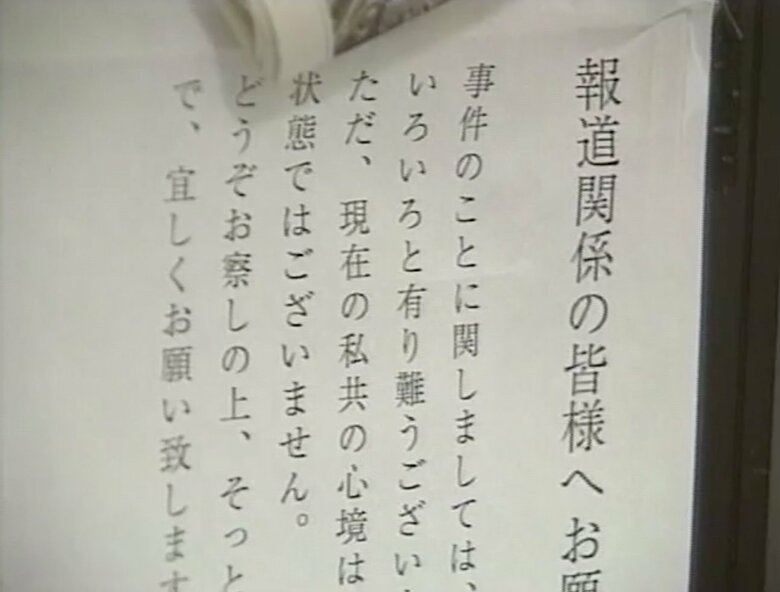 報道関係の皆様へお願
事件のことに関しましては、
いろいろと有り難うござい
ただ、現在の私共の心境は
状態ではございません。
どうぞお察しの上、そっと
で、宜しくお願い致します